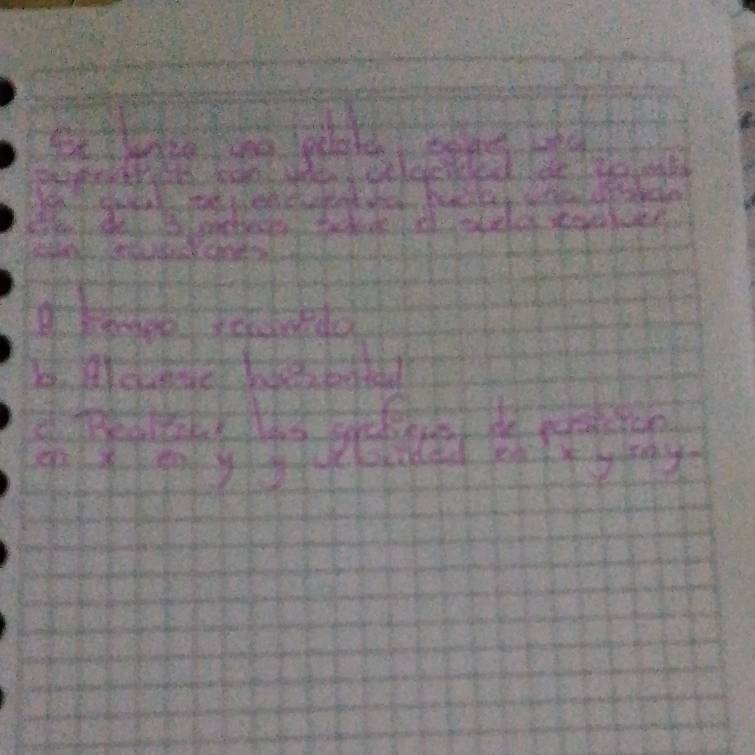 Se lanza una pelota sobre una
superficie con una velocidad de
la cual se encuentra hasta una distan
cia de 3 metros sobre el suelo resolver
con ecuaciones
A tiempo recorrido
b. Alcance horizontal
c. Realizar las graficas de posicion
en x en y y velocidad en x y en y.